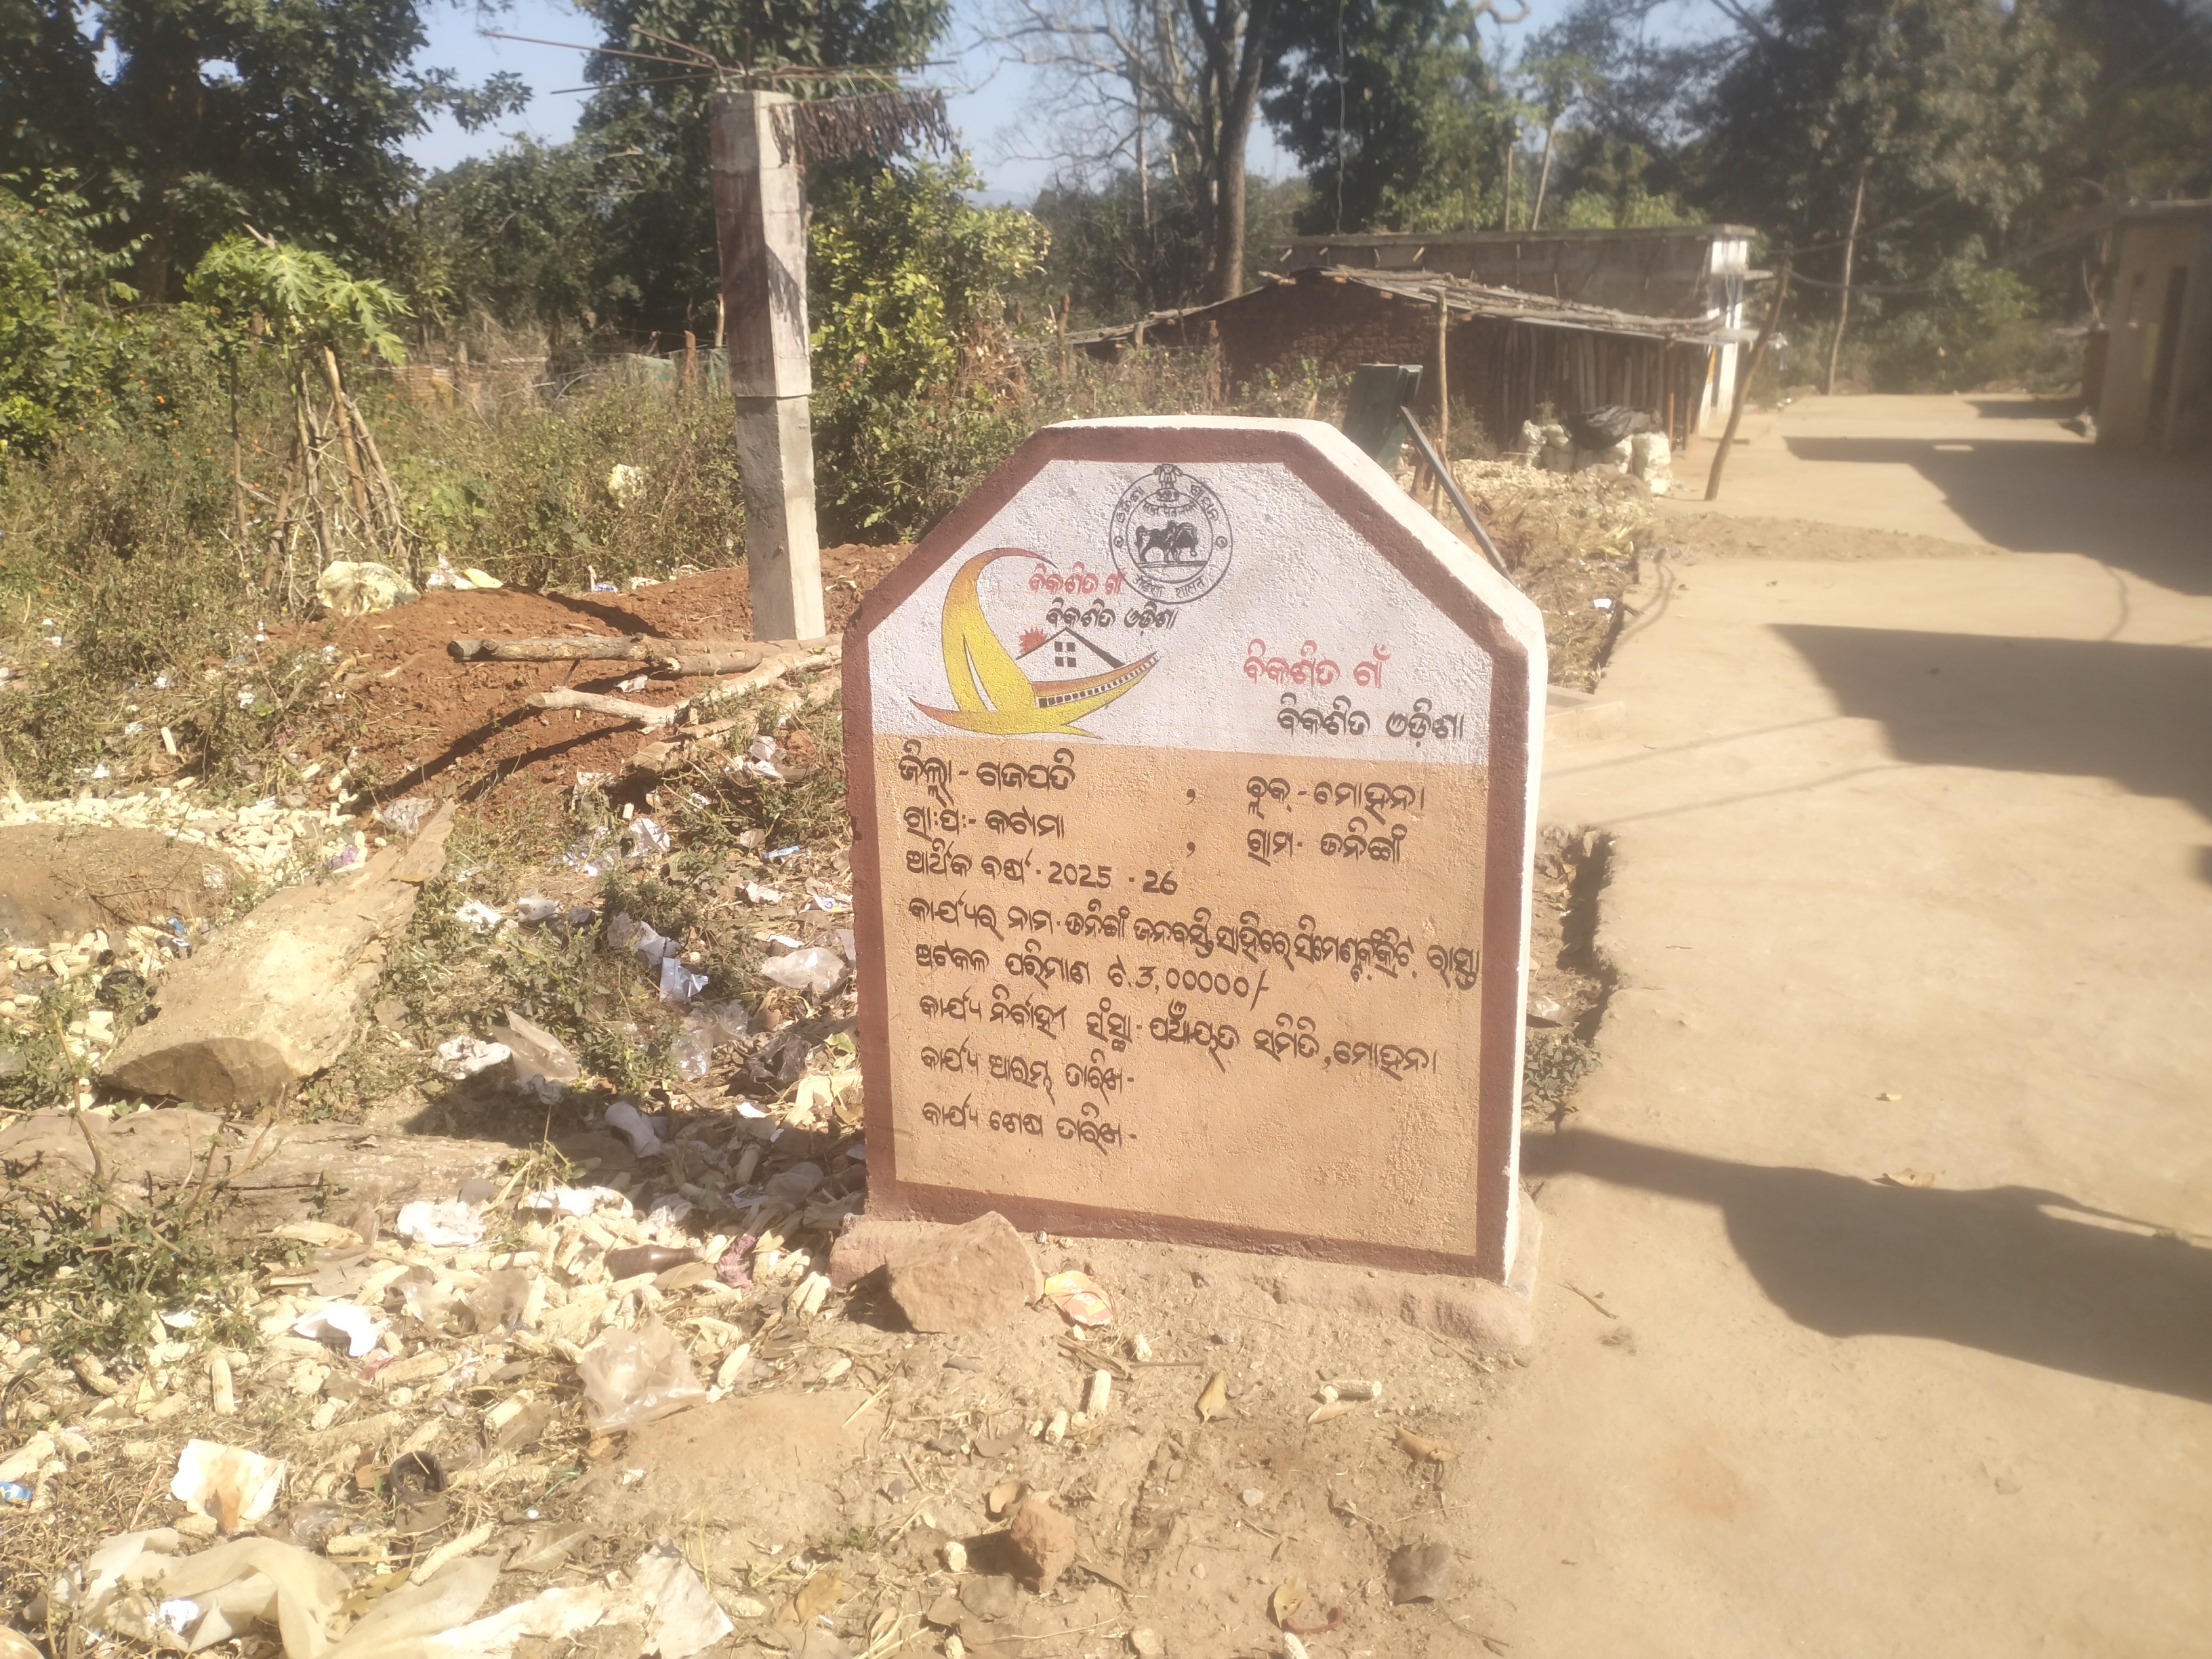 ଓଡ଼ିଶା ଶାସନ
ବିକଶିତ ଗାଁ
ବିକଶିତ ଓଡ଼ିଶା
ବିକଶିତ ଗାଁ
ବିକଶିତ ଓଡ଼ିଶା
ଜିଲ୍ଲା - ଗଜପତି , ବ୍ଲକ୍ - ମୋହନା
ଗ୍ରା:ପ:- କଟାମା , ଗ୍ରାମ - ଡନିଙ୍ଗାଁ
ଆର୍ଥିକ ବର୍ଷ - 2025 - 26
କାର୍ଯ୍ୟର ନାମ - ଜନବସ୍ତି ସାହିରେ ସିମେଣ୍ଟ କଂକ୍ରିଟ୍ ରାସ୍ତା
ଅଟକଳ ପରିମାଣ ଟ.3,00000/-
କାର୍ଯ୍ୟ ନିର୍ବାହୀ ସଂସ୍ଥା - ପଞ୍ଚାୟତ ସମିତି, ମୋହନା
କାର୍ଯ୍ୟ ଆରମ୍ଭ ତାରିଖ -
କାର୍ଯ୍ୟ ଶେଷ ତାରିଖ -